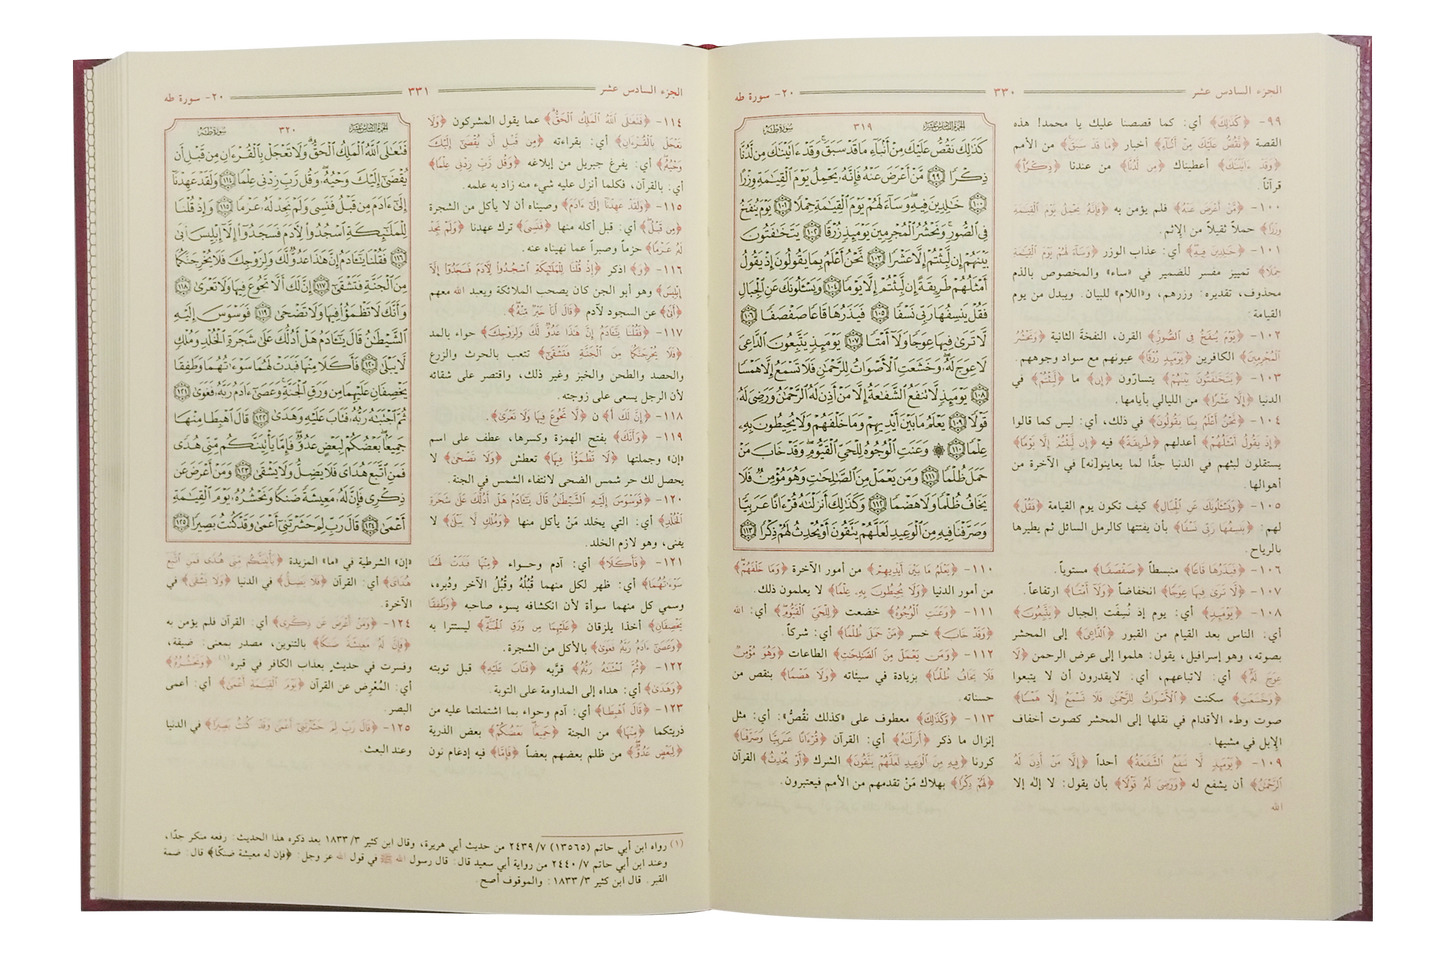 الجزء السادس عشر
٣٣٠
٢٠- سورة طه
٩٩- ﴿كَذَٰلِكَ﴾ أي: كما قصصنا عليك يا محمد! هذه
القصة ﴿نَقُصُّ عَلَيْكَ مِنْ أَنۢبَآءِ﴾ أخبار ﴿مَا قَدْ سَبَقَ﴾ من الأمم
﴿وَقَدْ ءَاتَيْنَٰكَ﴾ أعطيناك ﴿مِن لَّدُنَّا﴾ من عندنا ﴿ذِكْرًا﴾
قرآناً.
١٠٠- ﴿مَّنْ أَعْرَضَ عَنْهُ﴾ فلم يؤمن به ﴿فَإِنَّهُۥ يَحْمِلُ يَوْمَ ٱلْقِيَٰمَةِ
وِزْرًا﴾ حملاً ثقيلاً من الإثم.
١٠١- ﴿خَٰلِدِينَ فِيهِ﴾ أي: عذاب الوزر ﴿وَسَآءَ لَهُمْ يَوْمَ ٱلْقِيَٰمَةِ
حِمْلًا﴾ تمييز مفسر للضمير في «ساء» والمخصوص بالذم
محذوف، تقديره: وزرهم، و«اللام» للبيان. ويبدل من يوم
القيامة:
١٠٢- ﴿يَوْمَ يُنفَخُ فِى ٱلصُّورِ﴾ القرن، النفخة الثانية ﴿وَنَحْشُرُ
ٱلْمُجْرِمِينَ﴾ الكافرين ﴿يَوْمَئِذٍ زُرْقًا﴾ عيونهم مع سواد وجوههم.
١٠٣- ﴿يَتَخَٰفَتُونَ بَيْنَهُمْ﴾ يتسارّون ﴿إِن﴾ ما ﴿لَّبِثْتُمْ﴾ في
الدنيا ﴿إِلَّا عَشْرًا﴾ من الليالي بأيامها.
١٠٤- ﴿نَّحْنُ أَعْلَمُ بِمَا يَقُولُونَ﴾ في ذلك، أي: ليس كما قالوا
﴿إِذْ يَقُولُ أَمْثَلُهُمْ﴾ أعدلهم ﴿طَرِيقَةً﴾ فيه ﴿إِن لَّبِثْتُمْ إِلَّا يَوْمًا﴾
يستقلون لبثهم في الدنيا جدًّا لما يعاينو[نه] في الآخرة من
أهوالها.
١٠٥- ﴿وَيَسْـَٔلُونَكَ عَنِ ٱلْجِبَالِ﴾ كيف تكون يوم القيامة ﴿فَقُلْ﴾
لهم: ﴿يَنسِفُهَا رَبِّى نَسْفًا﴾ بأن يفتتها كالرمل السائل ثم يطيرها
بالرياح.
١٠٦- ﴿فَيَذَرُهَا قَاعًا﴾ منبسطاً ﴿صَفْصَفًا﴾ مستوياً.
١٠٧- ﴿لَّا تَرَىٰ فِيهَا عِوَجًا﴾ انخفاضاً ﴿وَلَآ أَمْتًا﴾ ارتفاعاً.
١٠٨- ﴿يَوْمَئِذٍ﴾ أي: يوم إذ نُسِفت الجبال ﴿يَتَّبِعُونَ﴾
أي: الناس بعد القيام من القبور ﴿ٱلدَّاعِىَ﴾ إلى المحشر
بصوته، وهو إسرافيل، يقول: هلموا إلى عرض الرحمن ﴿لَا
عِوَجَ لَهُۥ﴾ أي: لاتباعهم، أي: لايقدرون أن لا يتبعوا
﴿وَخَشَعَتِ﴾ سكنت ﴿ٱلْأَصْوَاتُ لِلرَّحْمَٰنِ فَلَا تَسْمَعُ إِلَّا هَمْسًا﴾
صوت وطء الأقدام في نقلها إلى المحشر كصوت أخفاف
الإبل في مشيها.
١٠٩- ﴿يَوْمَئِذٍ لَّا تَنفَعُ ٱلشَّفَٰعَةُ﴾ أحداً ﴿إِلَّا مَنْ أَذِنَ لَهُ
ٱلرَّحْمَٰنُ﴾ أن يشفع له ﴿وَرَضِىَ لَهُۥ قَوْلًا﴾ بأن يقول: لا إله إلا
الله
الجزء السادس عشر
٣١٩
سورة طه
كَذَٰلِكَ نَقُصُّ عَلَيْكَ مِنْ أَنۢبَآءِ مَا قَدْ سَبَقَ ۚ وَقَدْ ءَاتَيْنَٰكَ مِن لَّدُنَّا
ذِكْرًا ۝٩٩ مَّنْ أَعْرَضَ عَنْهُ فَإِنَّهُۥ يَحْمِلُ يَوْمَ ٱلْقِيَٰمَةِ وِزْرًا
۝١٠٠ خَٰلِدِينَ فِيهِ ۖ وَسَآءَ لَهُمْ يَوْمَ ٱلْقِيَٰمَةِ حِمْلًا ۝١٠١ يَوْمَ يُنفَخُ
فِى ٱلصُّورِ ۚ وَنَحْشُرُ ٱلْمُجْرِمِينَ يَوْمَئِذٍ زُرْقًا ۝١٠٢ يَتَخَٰفَتُونَ
بَيْنَهُمْ إِن لَّبِثْتُمْ إِلَّا عَشْرًا ۝١٠٣ نَّحْنُ أَعْلَمُ بِمَا يَقُولُونَ إِذْ يَقُولُ
أَمْثَلُهُمْ طَرِيقَةً إِن لَّبِثْتُمْ إِلَّا يَوْمًا ۝١٠٤ وَيَسْـَٔلُونَكَ عَنِ ٱلْجِبَالِ
فَقُلْ يَنسِفُهَا رَبِّى نَسْفًا ۝١٠٥ فَيَذَرُهَا قَاعًا صَفْصَفًا ۝١٠٦
لَّا تَرَىٰ فِيهَا عِوَجًا وَلَآ أَمْتًا ۝١٠٧ يَوْمَئِذٍ يَتَّبِعُونَ ٱلدَّاعِىَ
لَا عِوَجَ لَهُۥ ۖ وَخَشَعَتِ ٱلْأَصْوَاتُ لِلرَّحْمَٰنِ فَلَا تَسْمَعُ إِلَّا هَمْسًا
۝١٠٨ يَوْمَئِذٍ لَّا تَنفَعُ ٱلشَّفَٰعَةُ إِلَّا مَنْ أَذِنَ لَهُ ٱلرَّحْمَٰنُ وَرَضِىَ لَهُۥ
قَوْلًا ۝١٠٩ يَعْلَمُ مَا بَيْنَ أَيْدِيهِمْ وَمَا خَلْفَهُمْ وَلَا يُحِيطُونَ بِهِۦ
عِلْمًا ۝١١٠ ۞ وَعَنَتِ ٱلْوُجُوهُ لِلْحَىِّ ٱلْقَيُّومِ ۖ وَقَدْ خَابَ مَنْ
حَمَلَ ظُلْمًا ۝١١١ وَمَن يَعْمَلْ مِنَ ٱلصَّٰلِحَٰتِ وَهُوَ مُؤْمِنٌ فَلَا
يَخَافُ ظُلْمًا وَلَا هَضْمًا ۝١١٢ وَكَذَٰلِكَ أَنزَلْنَٰهُ قُرْءَانًا عَرَبِيًّا
وَصَرَّفْنَا فِيهِ مِنَ ٱلْوَعِيدِ لَعَلَّهُمْ يَتَّقُونَ أَوْ يُحْدِثُ لَهُمْ ذِكْرًا ۝١١٣
١١٠- ﴿يَعْلَمُ مَا بَيْنَ أَيْدِيهِمْ﴾ من أمور الآخرة ﴿وَمَا خَلْفَهُمْ﴾
من أمور الدنيا ﴿وَلَا يُحِيطُونَ بِهِۦ عِلْمًا﴾ لا يعلمون ذلك.
١١١- ﴿وَعَنَتِ ٱلْوُجُوهُ﴾ خضعت ﴿لِلْحَىِّ ٱلْقَيُّومِ﴾ أي: الله
﴿وَقَدْ خَابَ﴾ خسر ﴿مَنْ حَمَلَ ظُلْمًا﴾ أي: شركاً.
١١٢- ﴿وَمَن يَعْمَلْ مِنَ ٱلصَّٰلِحَٰتِ﴾ الطاعات ﴿وَهُوَ مُؤْمِنٌ
فَلَا يَخَافُ ظُلْمًا﴾ بزيادة في سيئاته ﴿وَلَا هَضْمًا﴾ بنقص من
حسناته.
١١٣- ﴿وَكَذَٰلِكَ﴾ معطوف على «كذلك نقُصُّ»: أي: مثل
إنزال ما ذكر ﴿أَنزَلْنَٰهُ﴾ أي: القرآن ﴿قُرْءَانًا عَرَبِيًّا وَصَرَّفْنَا﴾
كررنا ﴿فِيهِ مِنَ ٱلْوَعِيدِ لَعَلَّهُمْ يَتَّقُونَ﴾ الشرك ﴿أَوْ يُحْدِثُ﴾ القرآن
﴿لَهُمْ ذِكْرًا﴾ بهلاك مَنْ تقدمهم من الأمم فيعتبرون.
الجزء السادس عشر
٣٣١
٢٠- سورة طه
١١٤- ﴿فَتَعَٰلَى ٱللَّهُ ٱلْمَلِكُ ٱلْحَقُّ﴾ عما يقول المشركون ﴿وَلَا
تَعْجَلْ بِٱلْقُرْءَانِ﴾ أي: بقراءته ﴿مِن قَبْلِ أَن يُقْضَىٰٓ إِلَيْكَ
وَحْيُهُۥ﴾ أي: يفرغ جبريل من إبلاغه ﴿وَقُل رَّبِّ زِدْنِى عِلْمًا﴾
أي: بالقرآن، فكلما أنزل عليه شيء منه زاد به علمه.
١١٥- ﴿وَلَقَدْ عَهِدْنَآ إِلَىٰٓ ءَادَمَ﴾ وصيناه أن لا يأكل من الشجرة
﴿مِن قَبْلُ﴾ أي: قبل أكله منها ﴿فَنَسِىَ﴾ ترك عهدنا ﴿وَلَمْ نَجِدْ
لَهُۥ عَزْمًا﴾ حزماً وصبراً عما نهيناه عنه.
١١٦- ﴿وَ﴾ اذكر ﴿إِذْ قُلْنَا لِلْمَلَٰٓئِكَةِ ٱسْجُدُوا۟ لِءَادَمَ فَسَجَدُوٓا۟ إِلَّآ
إِبْلِيسَ﴾ وهو أبو الجن كان يصحب الملائكة ويعبد الله معهم
﴿أَبَىٰ﴾ عن السجود لآدم ﴿قَالَ أَنَا۠ خَيْرٌ مِّنْهُ﴾.
١١٧- ﴿فَقُلْنَا يَٰٓـَٔادَمُ إِنَّ هَٰذَا عَدُوٌّ لَّكَ وَلِزَوْجِكَ﴾ حواء بالمد
﴿فَلَا يُخْرِجَنَّكُمَا مِنَ ٱلْجَنَّةِ فَتَشْقَىٰٓ﴾ تتعب بالحرث والزرع
والحصد والطحن والخبز وغير ذلك، واقتصر على شقائه
لأن الرجل يسعى على زوجته.
١١٨- ﴿إِنَّ لَكَ أَ﴾ ن ﴿لَّا تَجُوعَ فِيهَا وَلَا تَعْرَىٰ﴾.
١١٩- ﴿وَأَنَّكَ﴾ بفتح الهمزة وكسرها، عطف على اسم
«إن» وجملتها ﴿لَا تَظْمَؤُا۟ فِيهَا﴾ تعطش ﴿وَلَا تَضْحَىٰ﴾ لا
يحصل لك حر شمس الضحى لانتفاء الشمس في الجنة.
١٢٠- ﴿فَوَسْوَسَ إِلَيْهِ ٱلشَّيْطَٰنُ قَالَ يَٰٓـَٔادَمُ هَلْ أَدُلُّكَ عَلَىٰ شَجَرَةِ
ٱلْخُلْدِ﴾ أي: التي يخلد مَنْ يأكل منها ﴿وَمُلْكٍ لَّا يَبْلَىٰ﴾ لا
يفنى، وهو لازم الخلد.
١٢١- ﴿فَأَكَلَا﴾ أي: آدم وحواء ﴿مِنْهَا فَبَدَتْ لَهُمَا
سَوْءَٰتُهُمَا﴾ أي: ظهر لكل منهما قُبُلُه وقُبُلُ الآخر ودُبره،
وسمي كل منهما سوأة لأن انكشافه يسوء صاحبه ﴿وَطَفِقَا
يَخْصِفَانِ﴾ أخذا يلزقان ﴿عَلَيْهِمَا مِن وَرَقِ ٱلْجَنَّةِ﴾ ليستترا به
﴿وَعَصَىٰٓ ءَادَمُ رَبَّهُۥ فَغَوَىٰ﴾ بالأكل من الشجرة.
١٢٢- ﴿ثُمَّ ٱجْتَبَٰهُ رَبُّهُۥ﴾ قرَّبه ﴿فَتَابَ عَلَيْهِ﴾ قبل توبته
﴿وَهَدَىٰ﴾ أي: هداه إلى المداومة على التوبة.
١٢٣- ﴿قَالَ ٱهْبِطَا﴾ أي: آدم وحواء بما اشتملتما عليه من
ذريتكما ﴿مِنْهَا﴾ من الجنة ﴿جَمِيعًۢا بَعْضُكُمْ﴾ بعض الذرية
﴿لِبَعْضٍ عَدُوٌّ﴾ من ظلم بعضهم بعضاً ﴿فَإِمَّا﴾ فيه إدغام نون
الجزء السادس عشر
٣٢٠
سورة طه
فَتَعَٰلَى ٱللَّهُ ٱلْمَلِكُ ٱلْحَقُّ ۗ وَلَا تَعْجَلْ بِٱلْقُرْءَانِ مِن قَبْلِ أَن
يُقْضَىٰٓ إِلَيْكَ وَحْيُهُۥ ۖ وَقُل رَّبِّ زِدْنِى عِلْمًا ۝١١٤ وَلَقَدْ عَهِدْنَآ
إِلَىٰٓ ءَادَمَ مِن قَبْلُ فَنَسِىَ وَلَمْ نَجِدْ لَهُۥ عَزْمًا ۝١١٥ وَإِذْ قُلْنَا
لِلْمَلَٰٓئِكَةِ ٱسْجُدُوا۟ لِءَادَمَ فَسَجَدُوٓا۟ إِلَّآ إِبْلِيسَ أَبَىٰ
۝١١٦ فَقُلْنَا يَٰٓـَٔادَمُ إِنَّ هَٰذَا عَدُوٌّ لَّكَ وَلِزَوْجِكَ فَلَا يُخْرِجَنَّكُمَا
مِنَ ٱلْجَنَّةِ فَتَشْقَىٰٓ ۝١١٧ إِنَّ لَكَ أَلَّا تَجُوعَ فِيهَا وَلَا تَعْرَىٰ ۝١١٨
وَأَنَّكَ لَا تَظْمَؤُا۟ فِيهَا وَلَا تَضْحَىٰ ۝١١٩ فَوَسْوَسَ إِلَيْهِ
ٱلشَّيْطَٰنُ قَالَ يَٰٓـَٔادَمُ هَلْ أَدُلُّكَ عَلَىٰ شَجَرَةِ ٱلْخُلْدِ وَمُلْكٍ
لَّا يَبْلَىٰ ۝١٢٠ فَأَكَلَا مِنْهَا فَبَدَتْ لَهُمَا سَوْءَٰتُهُمَا وَطَفِقَا
يَخْصِفَانِ عَلَيْهِمَا مِن وَرَقِ ٱلْجَنَّةِ ۚ وَعَصَىٰٓ ءَادَمُ رَبَّهُۥ فَغَوَىٰ ۝١٢١
ثُمَّ ٱجْتَبَٰهُ رَبُّهُۥ فَتَابَ عَلَيْهِ وَهَدَىٰ ۝١٢٢ قَالَ ٱهْبِطَا مِنْهَا
جَمِيعًۢا ۖ بَعْضُكُمْ لِبَعْضٍ عَدُوٌّ ۖ فَإِمَّا يَأْتِيَنَّكُم مِّنِّى هُدًى
فَمَنِ ٱتَّبَعَ هُدَاىَ فَلَا يَضِلُّ وَلَا يَشْقَىٰ ۝١٢٣ وَمَنْ أَعْرَضَ عَن
ذِكْرِى فَإِنَّ لَهُۥ مَعِيشَةً ضَنكًا وَنَحْشُرُهُۥ يَوْمَ ٱلْقِيَٰمَةِ
أَعْمَىٰ ۝١٢٤ قَالَ رَبِّ لِمَ حَشَرْتَنِىٓ أَعْمَىٰ وَقَدْ كُنتُ بَصِيرًا ۝١٢٥
«إن» الشرطية في «ما» المزيدة ﴿يَأْتِيَنَّكُم مِّنِّى هُدًى فَمَنِ ٱتَّبَعَ
هُدَاىَ﴾ أي: القرآن ﴿فَلَا يَضِلُّ﴾ في الدنيا ﴿وَلَا يَشْقَىٰ﴾ في
الآخرة.
١٢٤- ﴿وَمَنْ أَعْرَضَ عَن ذِكْرِى﴾ أي: القرآن فلم يؤمن به
﴿فَإِنَّ لَهُۥ مَعِيشَةً ضَنكًا﴾ بالتنوين، مصدر بمعنى: ضيقة،
وفسرت في حديث بعذاب الكافر في قبره (١) ﴿وَنَحْشُرُهُۥ﴾
أي: المُعْرِض عن القرآن ﴿يَوْمَ ٱلْقِيَٰمَةِ أَعْمَىٰ﴾ أي: أعمى
البصر.
١٢٥- ﴿قَالَ رَبِّ لِمَ حَشَرْتَنِىٓ أَعْمَىٰ وَقَدْ كُنتُ بَصِيرًا﴾ في الدنيا
وعند البعث.
(١) رواه ابن أبي حاتم (١٣٥٦٥) ٢٤٣٩/٧ من حديث أبي هريرة، وقال ابن كثير ١٨٣٣/٣ بعد ذكره هذا الحديث: رفعه منكر جدّا،
وعند ابن أبي حاتم ٢٤٤٠/٧ من رواية أبي سعيد قال: قال رسول الله ﷺ في قول الله عز وجل: ﴿فإن له معيشة ضنكًا﴾ قال: ضمة
القبر. قال ابن كثير ١٨٣٣/٣: والموقوف أصح.